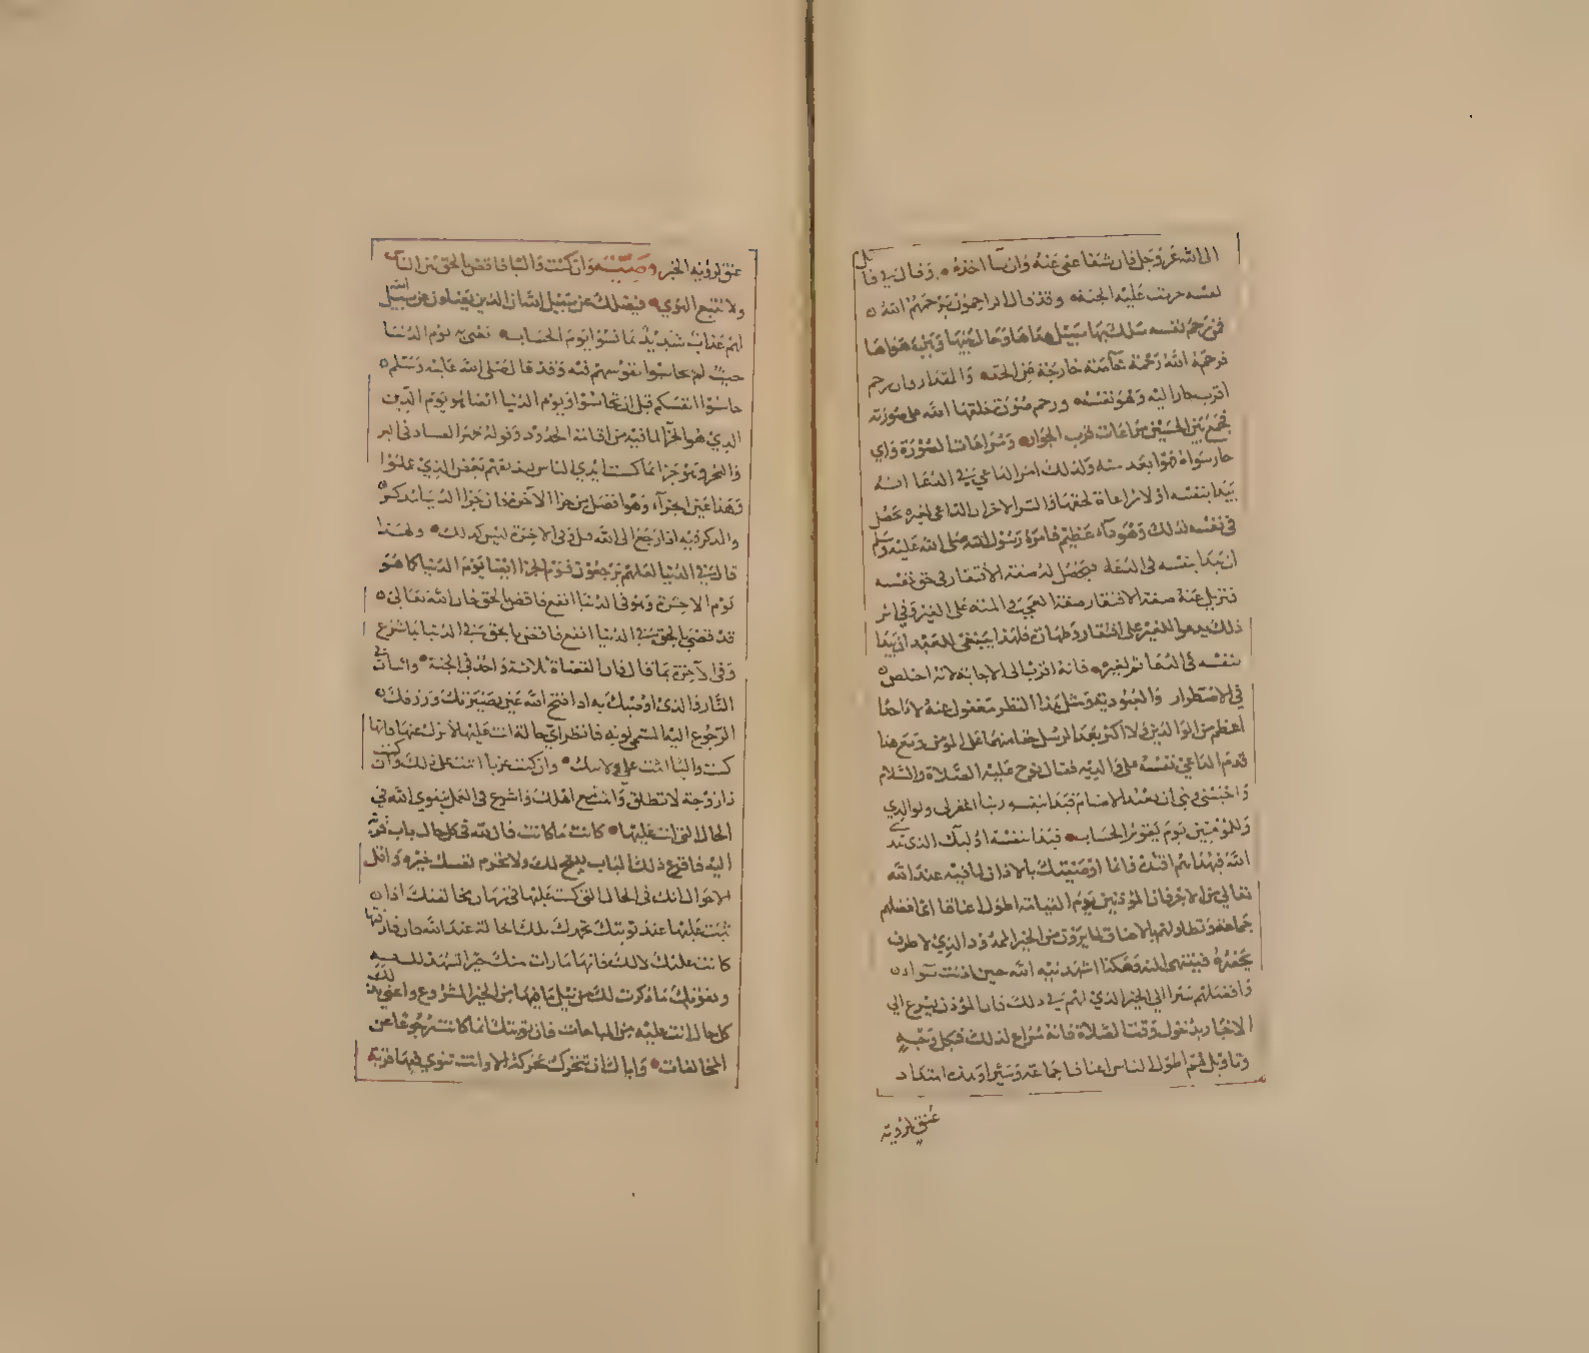 الى الله عز وجل فان شفا عفى عنه وان شا اخذه وقال في قاتل
نفسه حرمت عليه الجنة وقد قال الراحمون يرحمهم الله
فمن رحم نفسه سلك بها سبيل هداها وحال بينها وبين هواها
فرحمة الله رحمة خاصة خارجة عن الحد والمقدار وان رحم
اقرب جار اليه وهو نفسه ورحم صورة خلقها الله على صورته
فجمع بين الحسنيين مراعات قرب الجوار ومراعات الصورة واي
جار سواه فهوا بعد منه ولذلك امر الداعي في الدعا انه
يبدا بنفسه اولا مراعاة لحقها والسر الاخر ان الداعي لغيره يحصل
في نفسه لذلك وهو داء عظيم فامره رسول الله صلى الله عليه وسلم
ان يبدا بنفسه في الدعاء فيحصل له صفة الافتقار في حق نفسه
فتزيل عنه صفة الافتقار صفة العجب والمنة على الغير وفي اثر
ذلك يدعوا للغير على افتقار وطهارة فلهذا ينبغي للعبد ان يبدا
بنفسه في الدعا ثم لغيره فانه اقرب الى الاجابة لانه اخلص
في الاضطرار والعبودية ومثل هذا النظر مغفول عنه لا احدا
اعظم من الوالدين ولا اكثر بعد الرسل حقا منهما على المومن ومع هذا
قدم الداعي نفسه على والديه فقال نوح عليه الصلاة والسلام
واجنبني وبني ان نعبد الاصنام فبدا بنفسه ربنا اغفر لي ولوالدي
وللمؤمنين يوم يقوم الحساب فبدا بنفسه اولئك الذين هدى
الله فبهداهم اقتده فانما اوصيتك بالاذان لما فيه عند الله
تعالى من الاجر فان المؤذنين يوم القيامة اطول اعناقا
جماعة وتطاولهم بالاعناق لما يرون من الخير الممدود الذي لا طرف
يحفده فينتهي المنه وهكذا اشهد نبيه الله حين
وافضلهم سيرا الى الخير الذي لهم في ذلك فان المؤذن يسرع الى
الاخبار بدخول وقت الصلاة فانه مراع لذلك فبكل وجه
وتاويل فهم اطول الناس اعناقا جماعة وسيرا وهذه امتداد
عنق لرؤية
عنق لرؤية الخير وصية وان كنت واليا فاقض بالحق بين الناس
ولا تتبع الهوي فيضلك عن سبيل الله ان الذين يضلون عن سبيل الله
لهم عذاب شديد بما نسوا يوم الحساب يعني به يوم الدنيا
حيث لم يحاسبوا نفوسهم فيه وقد قال صلى الله عليه وسلم
حاسبوا انفسكم قبل ان تحاسبوا ويوم الدنيا ايضا هو يوم الدين
الذي هو الجزا لما فيه من اقامة الحدود وقوله ظهر الفساد في البر
والبحر وهو جزا بما كسبت ايدي الناس ليذيقهم بعض الذي عملوا
وهذا عين الجزاء وهو افضل من جزا الاخرة فان جزا الدنيا مذكر
والمذكر فيه اذا رجع الى الله قبل وفي الاخرة ليس كذلك ولهذا
قال في الدنيا لعلهم يرجعون فيوم الجزا ايضا يوم الدنيا كما هو
يوم الاخرة وهو في الدنيا انفع فاقض بالحق فان الله تعالى
قد قضى بالحق في الدنيا انفع فاقض بالحق في الدنيا بما شرع
وفي الاخرة بما قال فان القضاة ثلاثة واحد في الجنة واثنان في
النار والذي اوصيك به اذا فتح الله عين بصيرتك ورزقك
الرجوع اليه المسمى توبة فانظر اي حالة انت عليها لا تزل عنها فان
كنت واليا اثبت على ولايتك وان كنت عزبا اثبت على ذلك وان كنت
ذا زوجة لا تطلق واشرع في العمل بتقوى الله في
الحالة التي انت عليها كانت ما كانت فان لله في كل حال باب قربة
اليه فاقرع ذلك الباب يفتح لك ولا تحرم نفسك خيره واقل
الاحوال انك في الحال التي كنت عليها في زمان مخالفتك اذا
ثبت عليها عند توبتك تحمدك تلك الحالة عند الله فان فارقتها
كانت عليك لا لك فانها ما رات منك خيرا
ويفوتك ما ذكرت لك من نيل ما فيها من الخير المشروع واعني بذلك
كل حال انت عليه من المباحات فان توبتك انما كانت رجوعا عن
المخالفات واياك ان تتحرك بحركة الا وانت تنوي فيها قربة